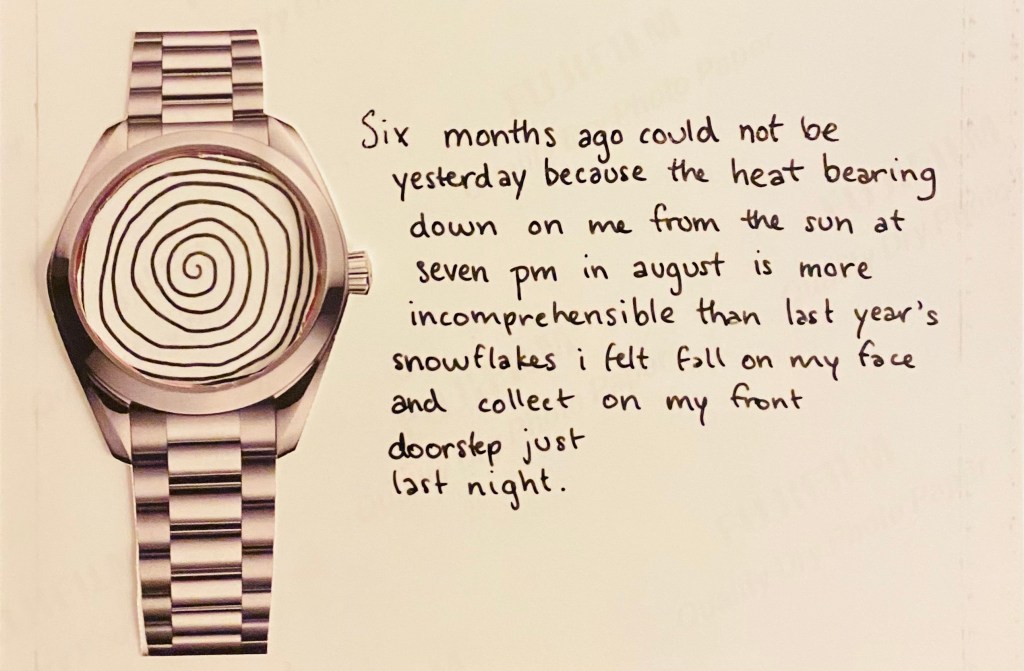 Six months ago could not be
yesterday because the heat bearing
down on me from the sun at
seven pm in august is more
incomprehensible than last year's
snowflakes i felt fall on my face
and collect on my front
doorstep just
last night.